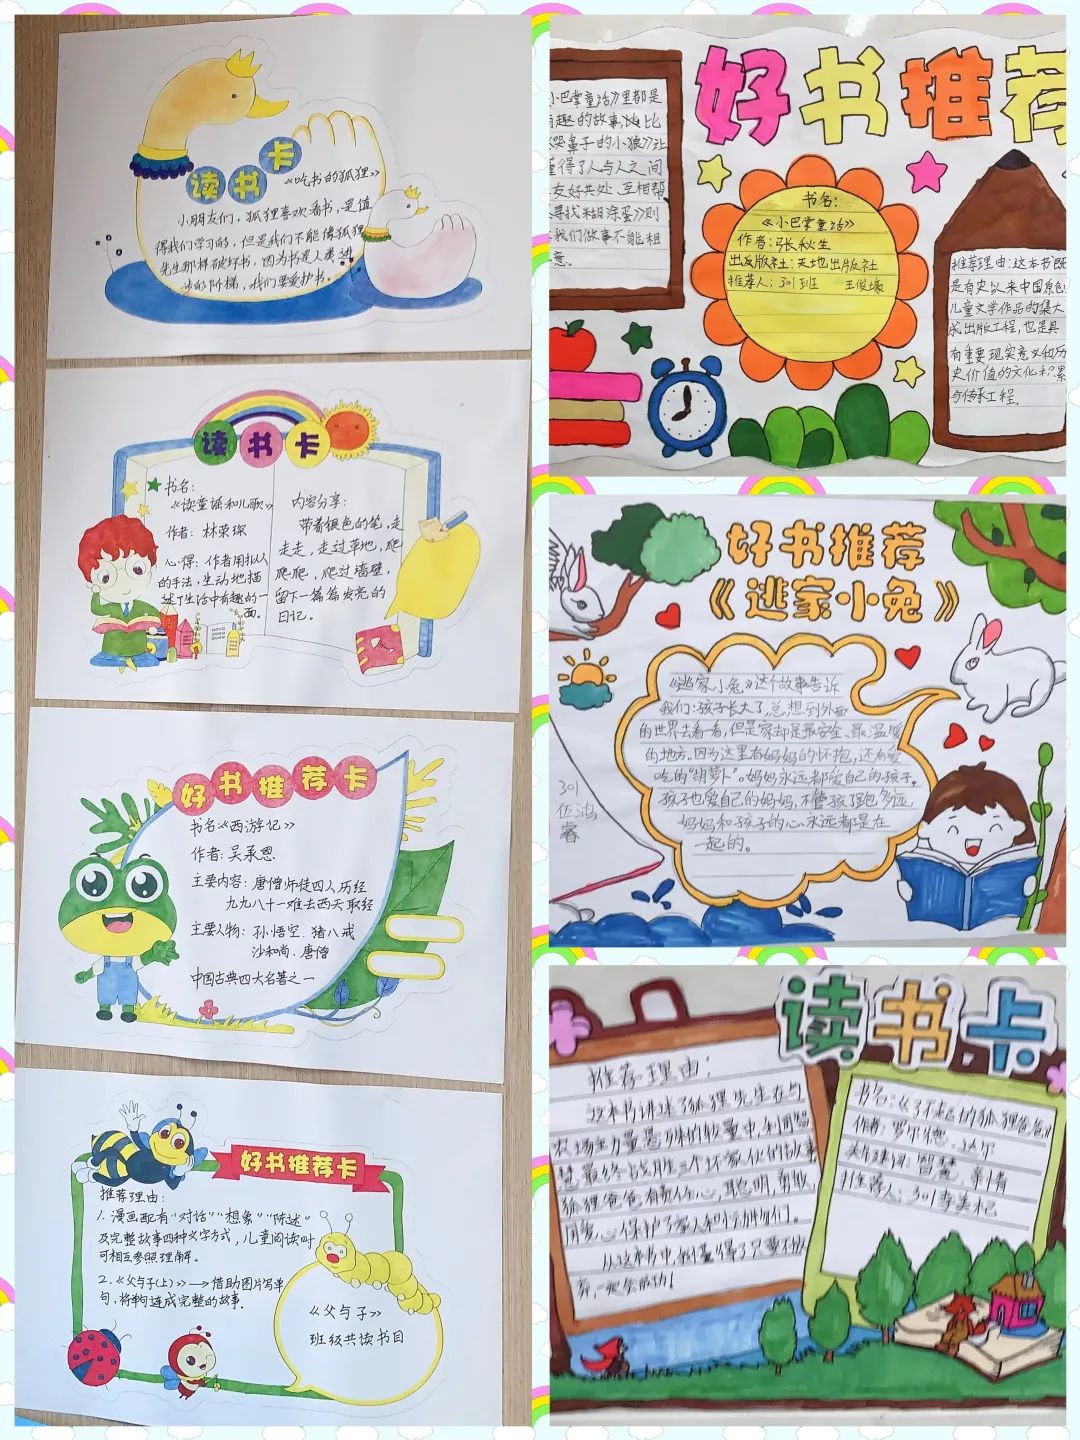 读书卡
《吃书的狐狸》
小朋友们，狐狸喜欢看书，是值
得我们学习的，但是我们不能像狐狸
先生那样破坏书，因为书是人类进
步的阶梯，我们要爱护书。
读书卡
书名：
《读童谣和儿歌》
作者：林荣琛
心得：作者用拟人
的手法，生动地描
述了生活中有趣的一
面。
内容分享：
带着银色的笔，走
走走，走过草地，爬
爬爬，爬过墙壁，
留下一篇篇发亮的
日记。
好书推荐卡
书名《西游记》
作者：吴承恩
主要内容：唐僧师徒四人历经
九九八十一难去西天取经
主要人物：孙悟空．猪八戒
沙和尚．唐僧
中国古典四大名著之一
好书推荐卡
推荐理由：
1．漫画配有“对话”“想象”“陈述”
及完整故事四种文字方式，儿童阅读时
可相互参照理解。
2．《父与子(上)》→借助图片写单
句，将单句连成完整的故事．
《父与子》
班级共读书目
好书推荐
小巴掌童话》里都是
有趣的故事，比
哭鼻子的小狼》让
懂得了人与人之间
友好共处、互相帮
寻找糊涂蛋》则
我们做事不能粗
意。
书名：
《小巴掌童话》
作者：张秋生
出版社：天地出版社
推荐人：301班 王俊
推荐理由：这本书既
是有史以来中国原色
儿童文学作品的集大
成出版工程，也是具
有重要现实意义和历
史价值的文化积累
与传承工程．
好书推荐
《逃家小兔》
《逃家小兔》这个故事告诉
我们：孩子长大了，总想到外面
的世界去看一看，但是家却是最安全、最温暖
的地方。因为这里有妈妈的怀抱，还有爱
吃的“胡萝卜”。妈妈永远都爱自己的孩子。
孩子也爱自己的妈妈，不管孩子跑多远，
妈妈和孩子的心永远都是在
一起的。
301
伍鸿
睿
读书卡
推荐理由：
这本书讲述了狐狸先生在与
农场主力量悬殊的较量中，利用智
慧最终战胜三个坏家伙的故事
狐狸爸爸有责任心，聪明，勇敢，
用爱心保护了家人和小动物们。
从这本书中，我懂得了只要不放
弃，一定会成功！
书名：《了不起的狐狸爸爸》
作者：罗尔德．达尔
关键词：智慧、亲情
推荐人：301李美杞